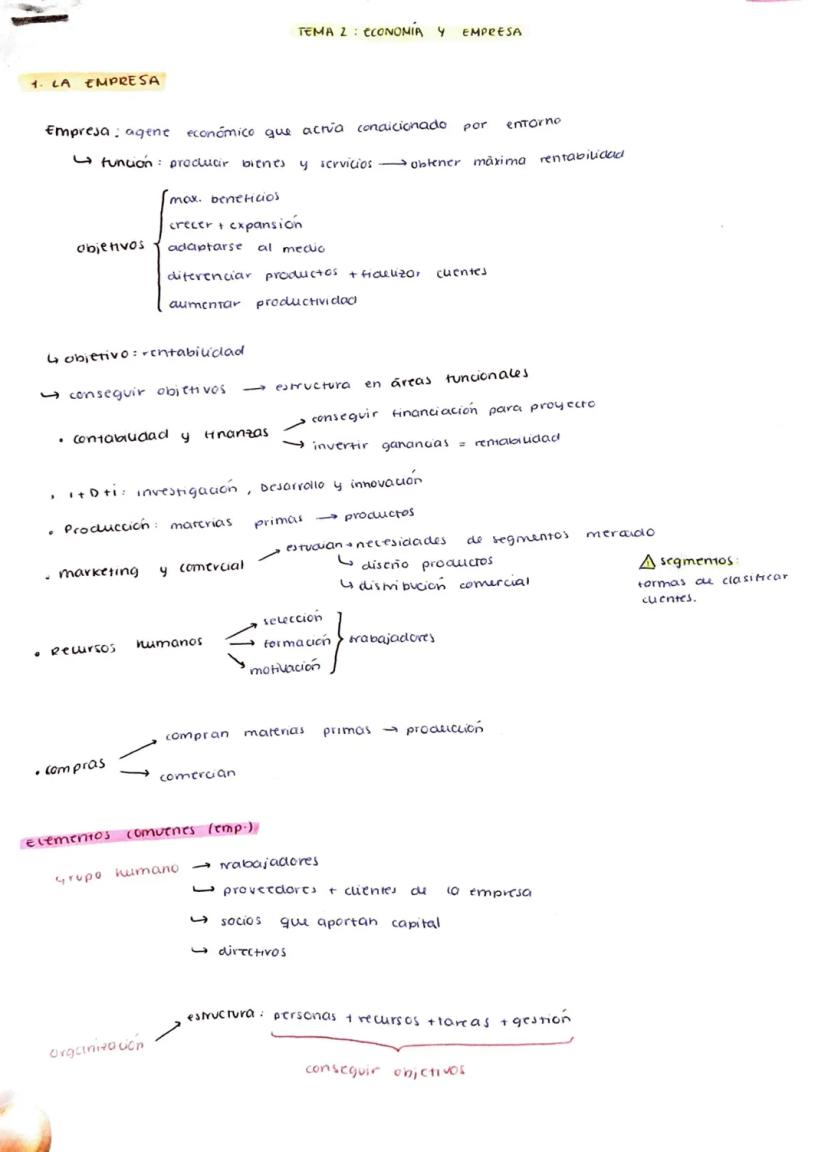 TEMA 2 : ECONOMÍA Y EMPRESA
1. LA EMPRESA
Empresa : agene económico que actúa condicionado por entorno
↳ función : producir bienes y servicios → obtener máxima rentabilidad
max. beneficios
crecer + expansión
objetivos
adaptarse al medio
diferenciar productos + fidelizar clientes
aumentar productividad
↳ objetivo : rentabilidad
↳ conseguir objetivos → estructura en áreas funcionales
• contabilidad y finanzas
→ conseguir financiación para proyecto
→ invertir ganancias = rentabilidad
• I+D+i : investigación , Desarrollo y innovación
• Producción : materias primas → productos
• marketing y comercial
→ estudian → necesidades de segmentos mercado
↳ diseño productos
↳ distribución comercial
⚠ segmentos :
formas de clasificar
clientes.
• Recursos humanos
→ selección
→ formación
→ motivación
trabajadores
• compras
→ compran materias primas → producción
→ comercian
Elementos comunes (emp.)
Grupo humano → trabajadores
↳ proveedores + clientes de la empresa
↳ socios que aportan capital
↳ directivos
organización
→ estructura : personas + recursos + tareas + gestión
conseguir objetivos